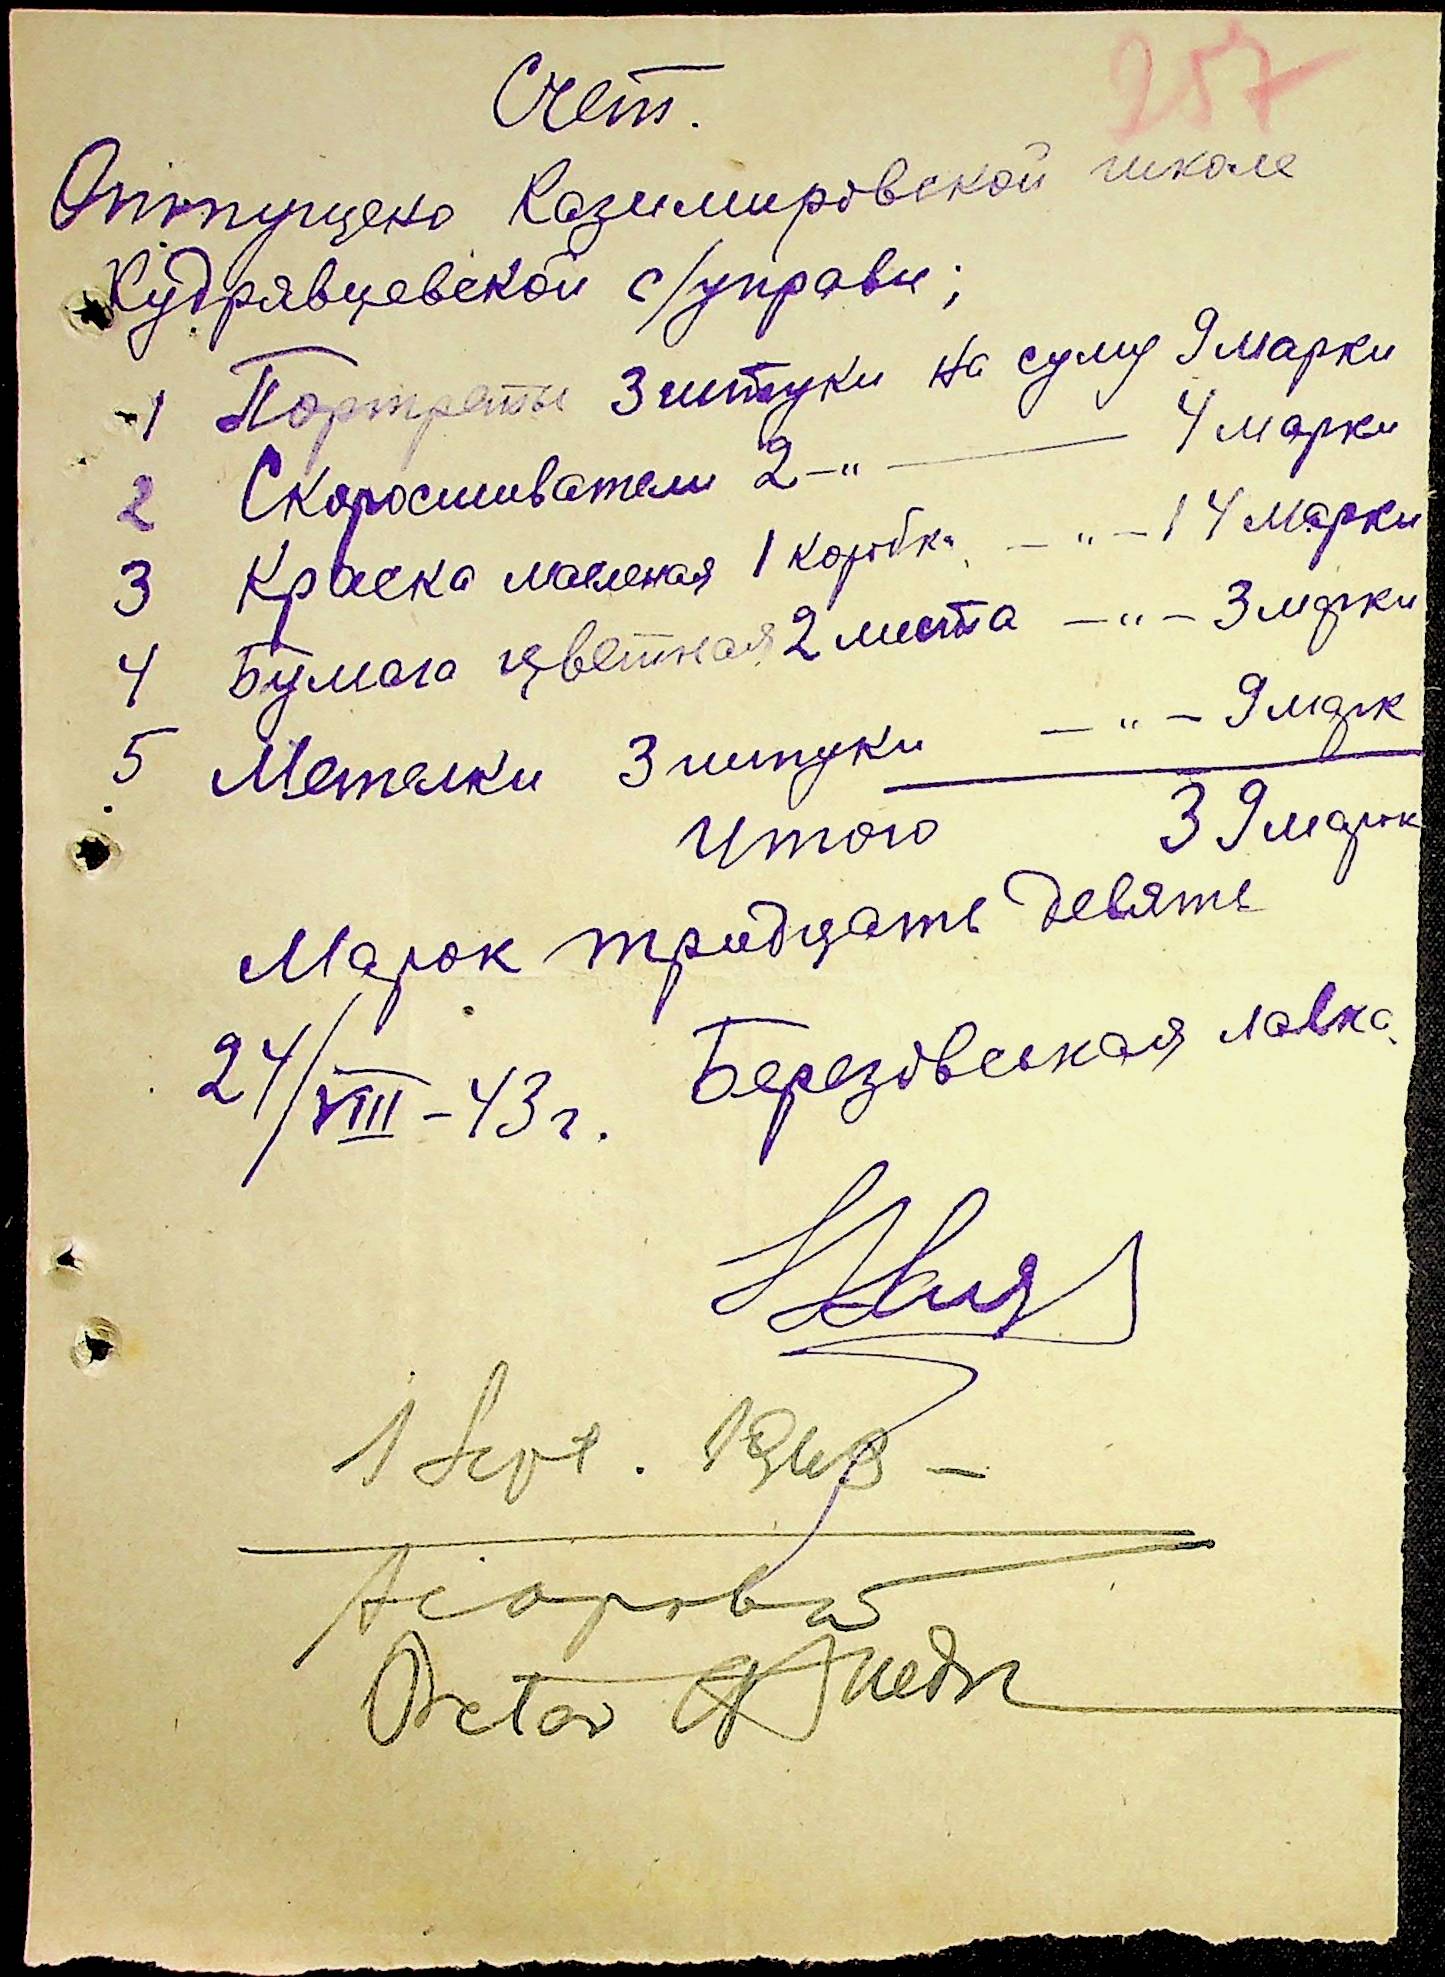 257
Счет.
Отпущено Казимировской школе
Кудрявцевской с/управы;
1 Портреты 3 штуки на суму 9 марки
2 Скоросшиватели 2 -"- 4 марки
3 Краска масленая 1 коробка -"- 14 марки
4 Бумага цветная 2 листа -"- 3 марки
5 Метелки 3 штуки -"- 9 марк
Итого 39 марок
Марок тридцать девять
24/VIII-43г. Березовськая лавка.
1 Sept. 1943 -